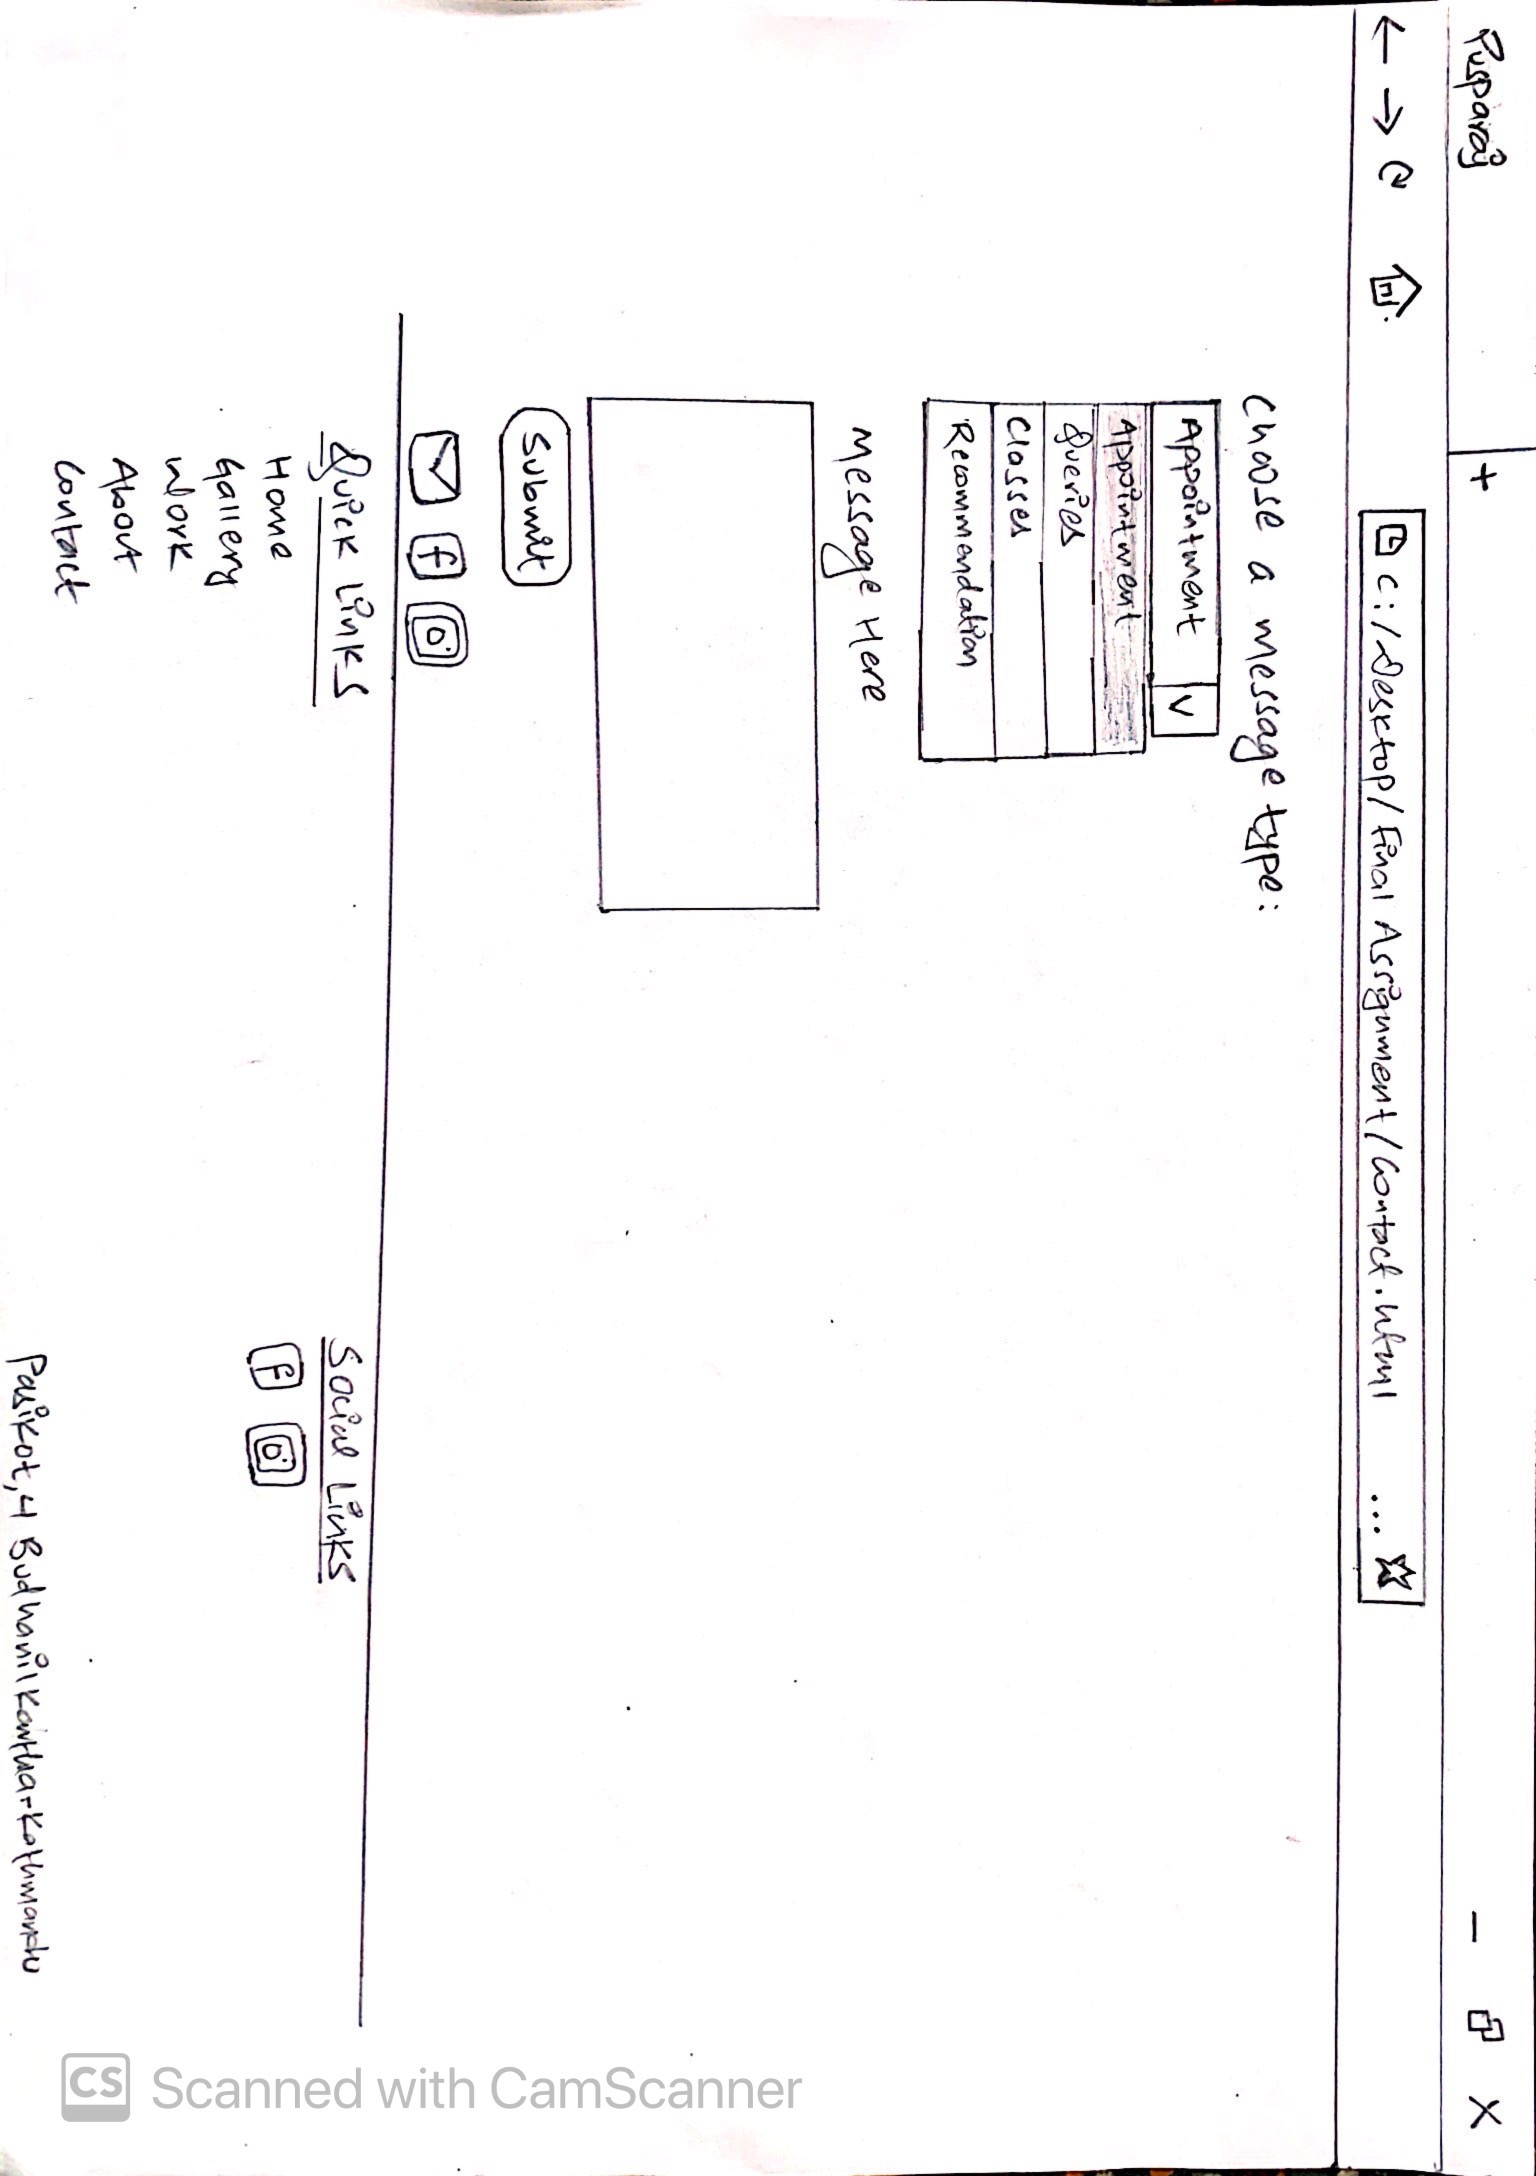 Pusparaj +
C:/Desktop/Final Assignment/Contact.html ...
Choose a message type:
Appointment
Appointment
Queries
Classes
Recommendation
Message Here
Submit
f
Quick Links
Social Links
Home
f
Gallery
Work
About
Contact
Pasikot, 4 Budhanilkantha-Kathmandu
CS Scanned with CamScanner